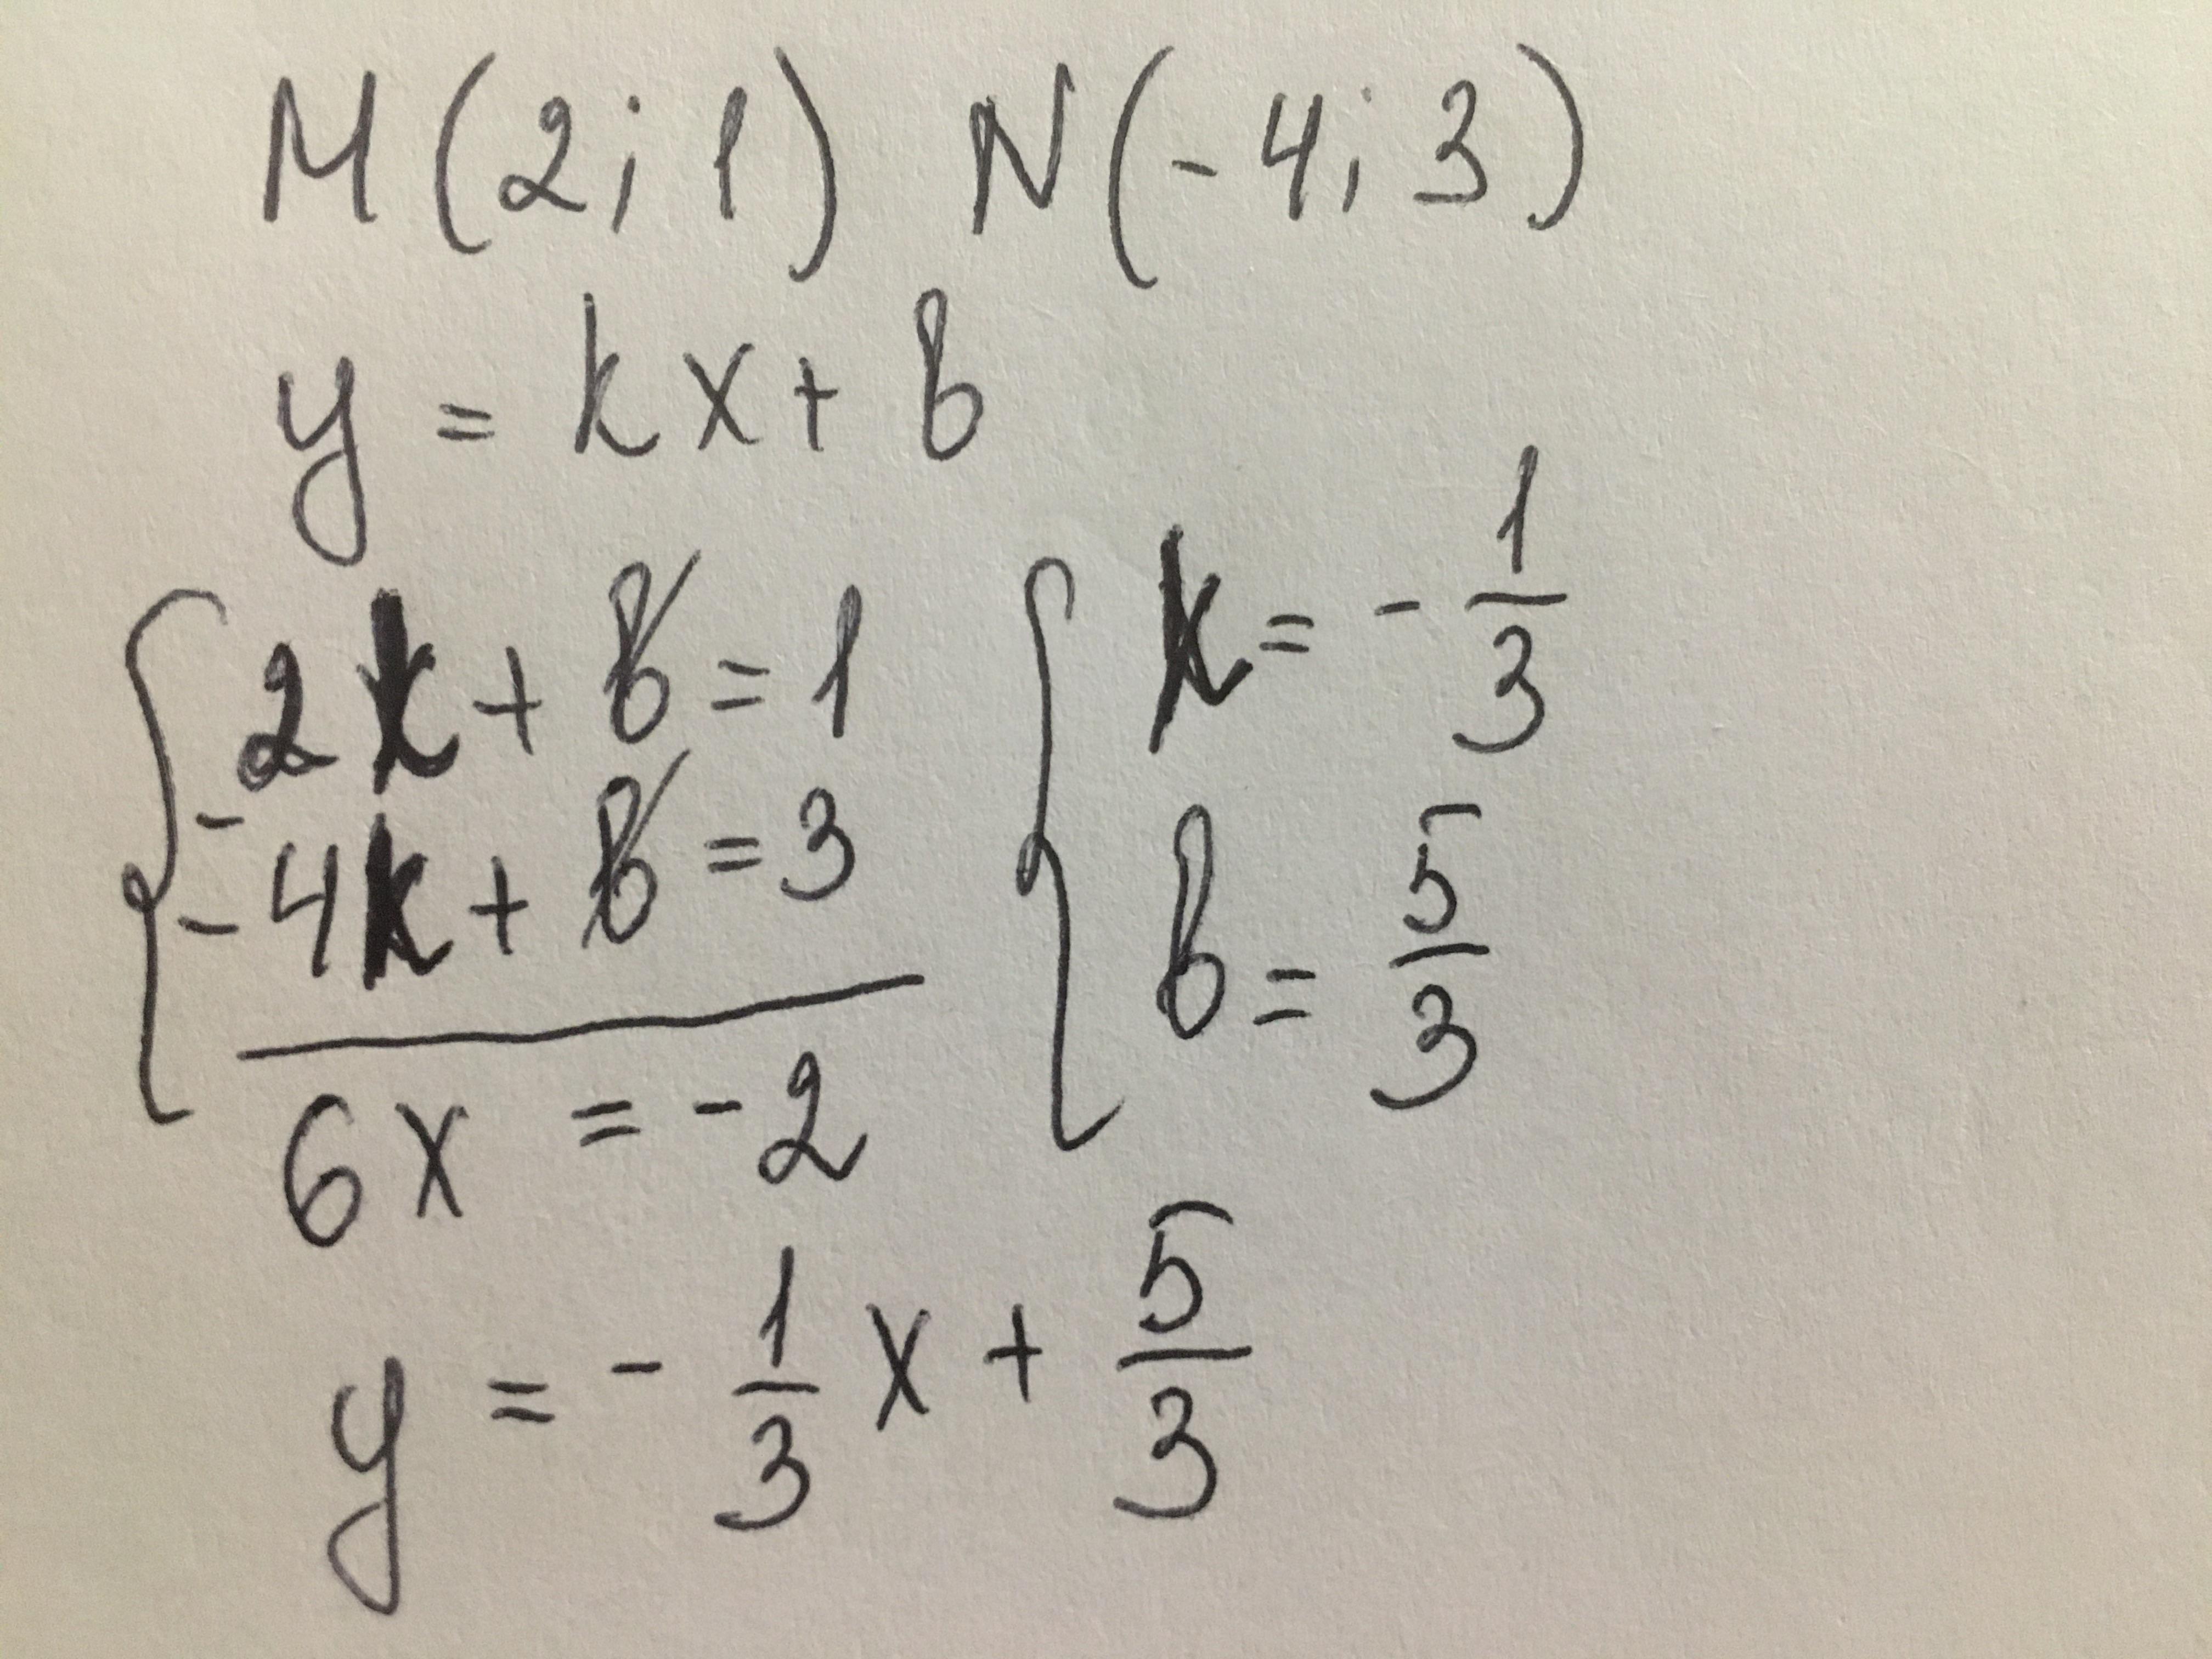 M(2;1) N(-4;3)
y = kx + b
2k + b = 1
-
-4k + b = 3
6x = -2
k = -1/3
b = 5/3
y = -1/3 x + 5/3